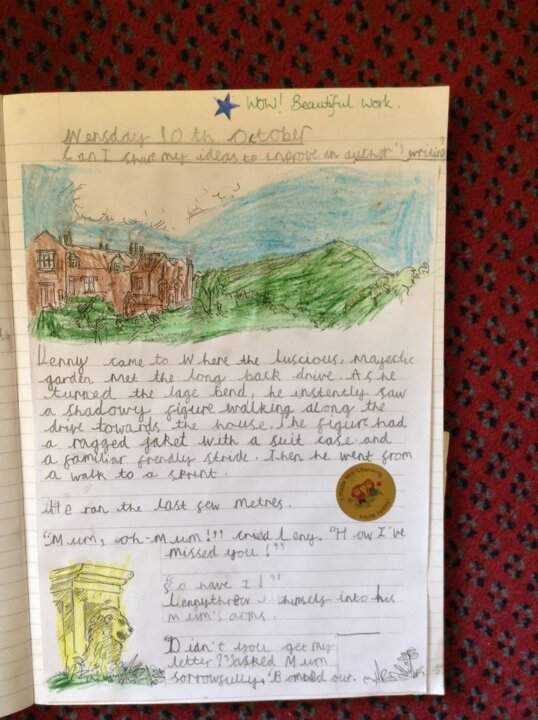 WOW! Beautiful work.
Wensday 10th October
Can I share my ideas to improve an author's writing?
Lenny came to where the luscious, majestic
garden met the long back drive. As he
turned the lage bend, he instently saw
a shadowy figure walking along the
drive towards the house. The figur had
a ragged jaket with a suit case and
a familiar frendly stride. Then he went from
a walk to a sprint.
He ran the last few metres.
I made Mrs Channon
smile today!
"Mum, oh-Mum!" cried Leny. "How I've
missed you!"
"So have I!"
Lenny threw himself into his
mum's arms.
"Didn't you get my
letter?" asked Mum
sorrowfully. out.